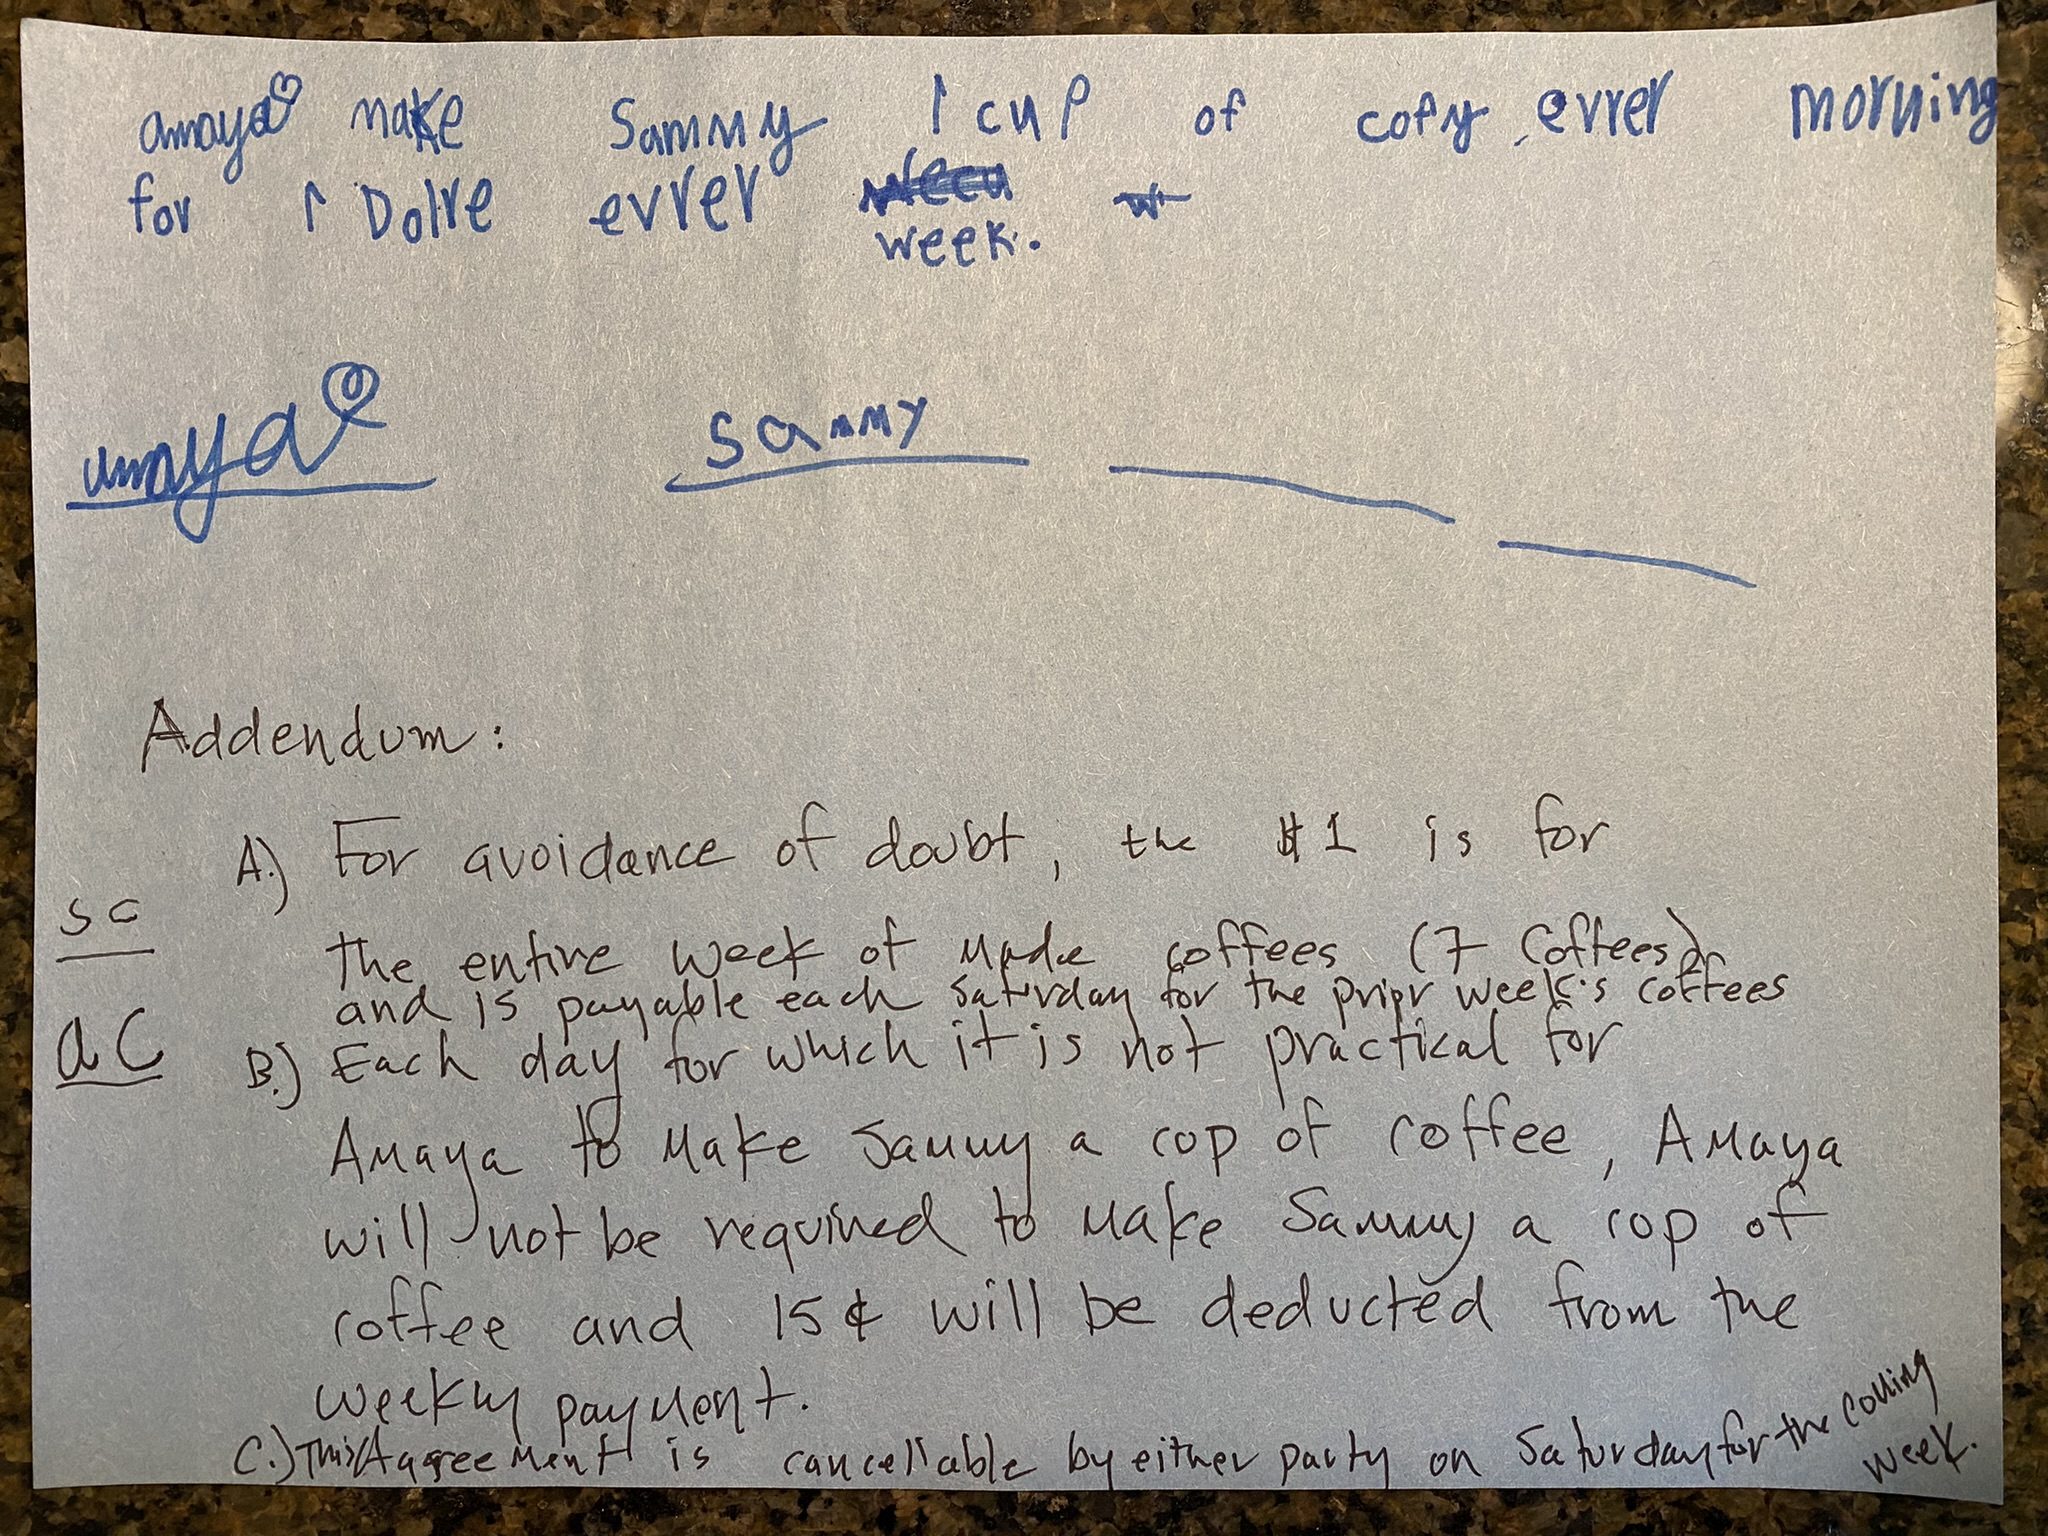 amaya make Sammy 1 cup of cofy evrer morning
for 1 Dolre evrer week.
amaya Sammy
Addendum:
A.) For avoidance of doubt, the $1 is for
SC
the entire week of made coffees (7 Coffees)
and is payable each Saturday for the prior week's coffees
aC
B.) Each day for which it is not practical for
Amaya to make Sammy a cop of coffee, Amaya
will not be required to make Sammy a cop of
coffee and 15¢ will be deducted from the
weekly payment.
C.) This Agreement is cancellable by either party on Saturday for the coming
week.